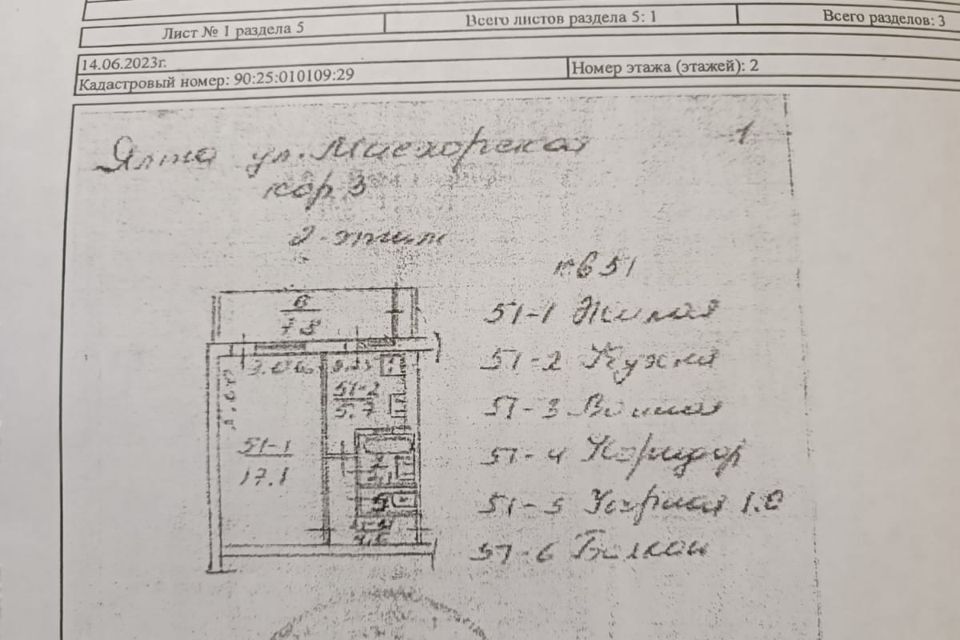 Лист № 1 раздела 5
Всего листов раздела 5: 1
Всего разделов: 3
14.06.2023г.
Кадастровый номер: 90:25:010109:29
Номер этажа (этажей): 2
1
Ялта ул. Мисхорская
кор 3
2-этаж
кв 51
51-1 Жилая
51-2 Кухня
51-3 Ванная
51-4 Коридор
51-5 Уборная 1.0
51-6 Балкон
В
51-2
51-1
17.1